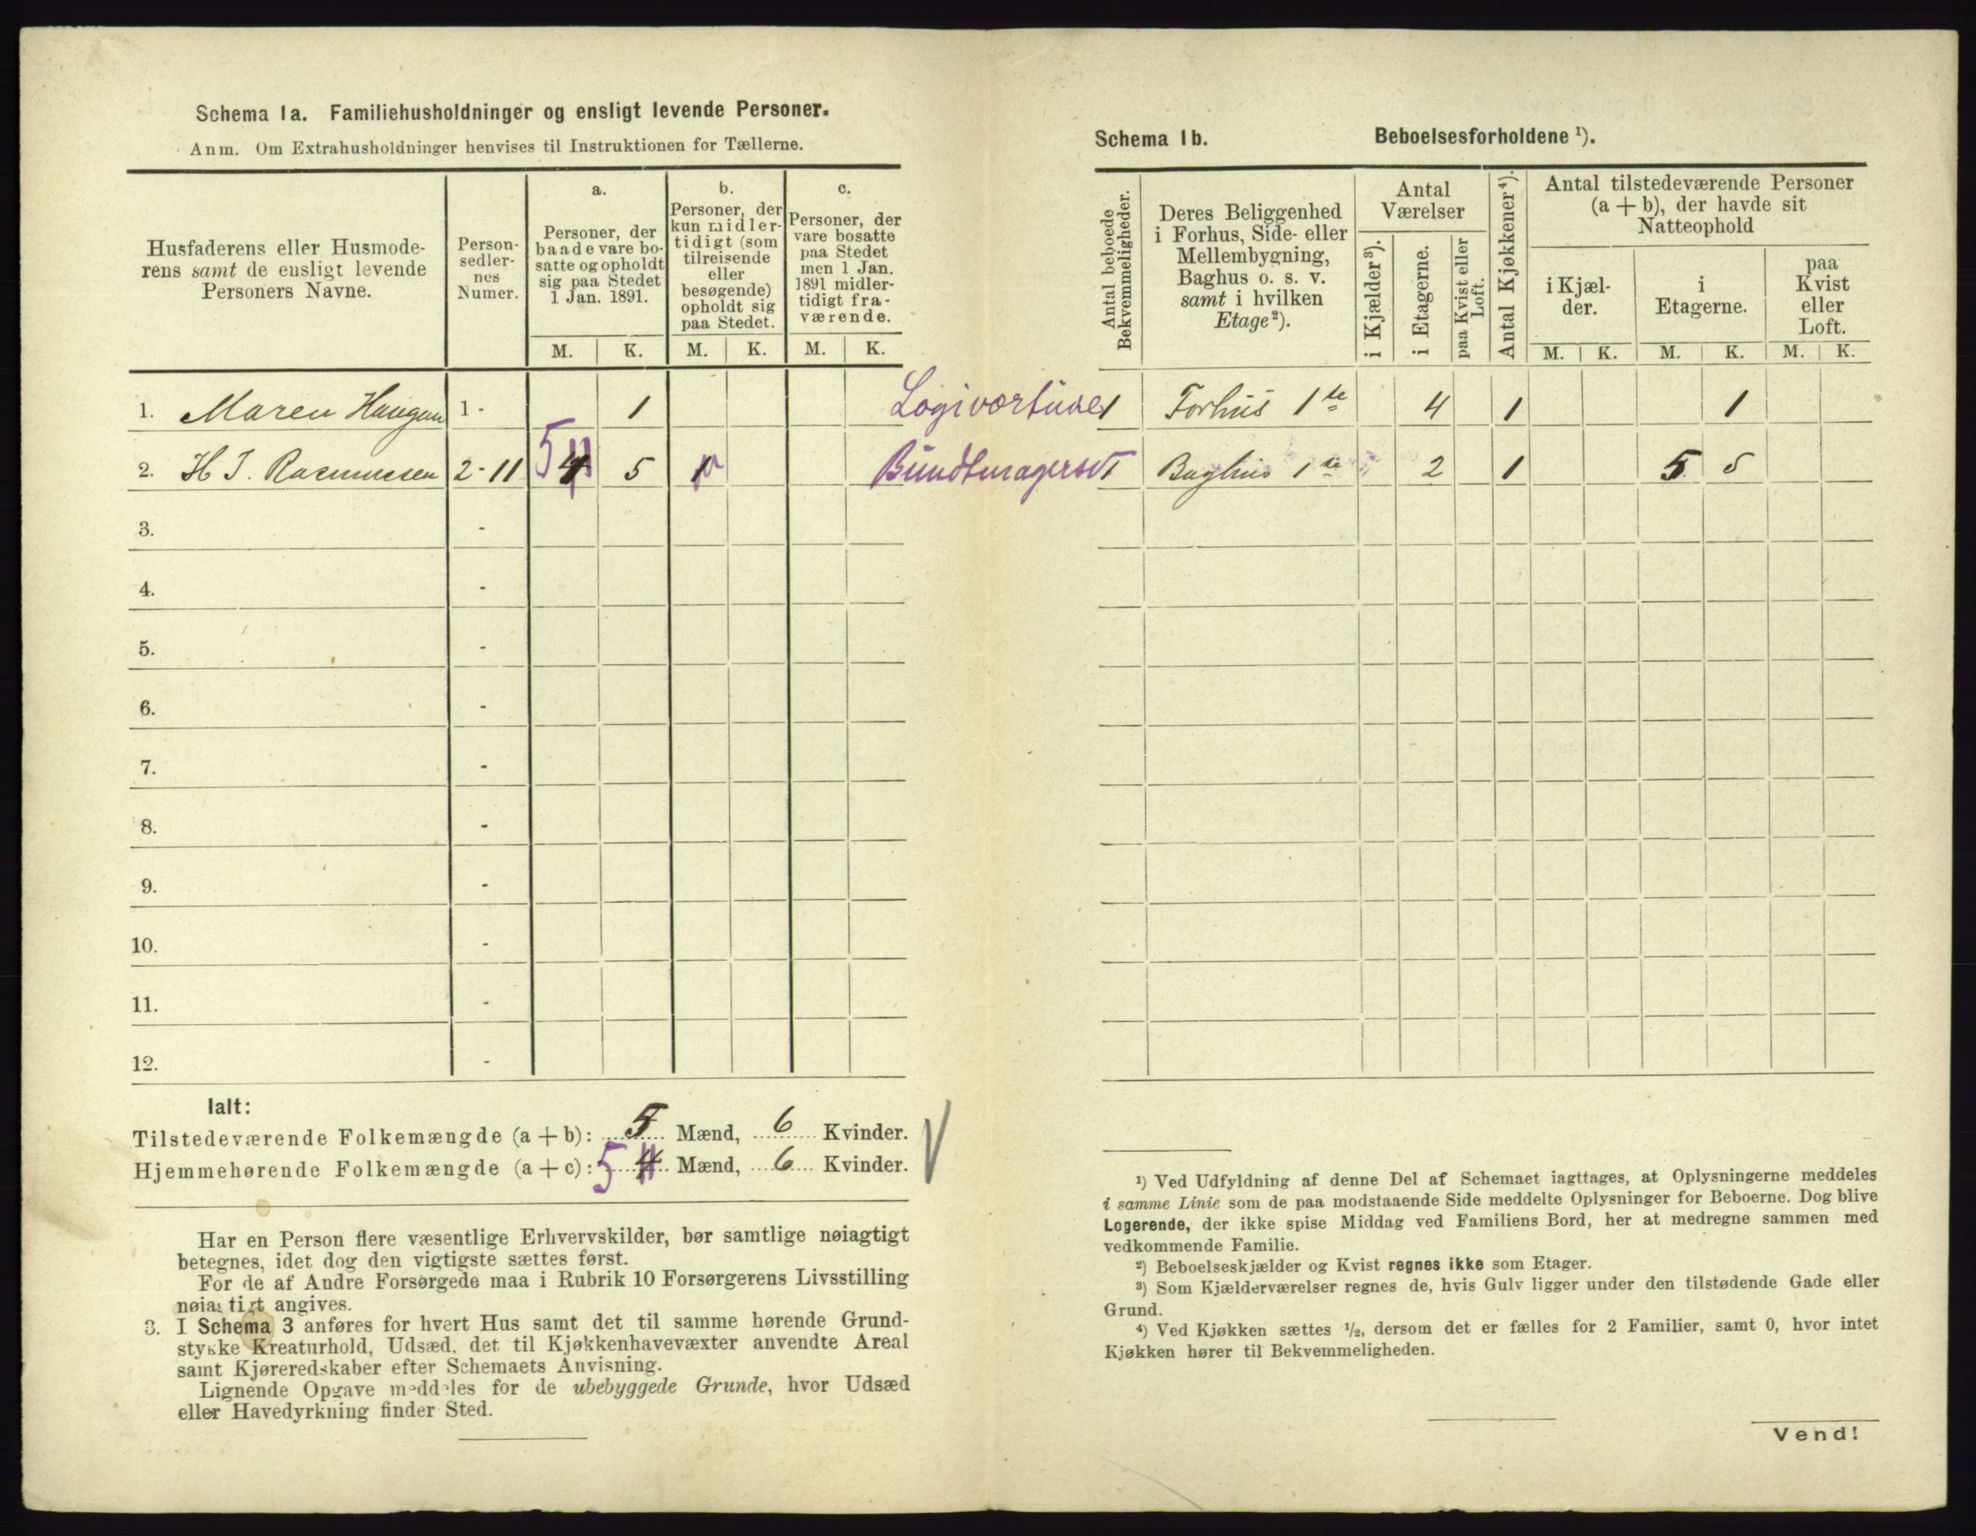 Schema 1a. Familiehusholdninger og ensligt levende Personer.
Anm. Om Extrahusholdninger henvises til Instruktionen for Tællerne.
Husfaderens eller Husmode-
rens samt de ensligt levende
Personers Navne.
Person-
sedler-
nes
Numer.
a.
Personer, der
baade vare bo-
satte og opholdt
sig paa Stedet
1 Jan. 1891.
b.
Personer, der
kun midler-
tidigt (som
tilreisende
eller
besøgende)
opholdt sig
paa Stedet.
c.
Personer, der
vare bosatte
paa Stedet
men 1 Jan.
1891 midler-
tidigt fra-
værende.
M. K. M. K. M. K.
1. Maren Haugen 1 - 1
2. H J. Rasmussen 2-11 5 4 5 1
3. -
4. -
5. -
6. -
7. -
8. -
9. -
10. -
11. -
12. -
Ialt:
Tilstedeværende Folkemængde (a + b): 5 Mænd, 6 Kvinder.
Hjemmehørende Folkemængde (a + c): 5 4 Mænd, 6 Kvinder.
Har en Person flere væsentlige Erhvervskilder, bør samtlige nøiagtigt
betegnes, idet dog den vigtigste sættes først.
For de af Andre Forsørgede maa i Rubrik 10 Forsørgerens Livsstilling
nøiagtigt angives.
3. I Schema 3 anføres for hvert Hus samt det til samme hørende Grund-
stykke Kreaturhold, Udsæd, det til Kjøkkenhavevæxter anvendte Areal
samt Kjøreredskaber efter Schemaets Anvisning.
Lignende Opgave meddeles for de ubebyggede Grunde, hvor Udsæd
eller Havedyrkning finder Sted.
Schema 1b. Beboelsesforholdene ¹).
Antal beboede
Bekvemmeligheder.
Deres Beliggenhed
i Forhus, Side- eller
Mellembygning,
Baghus o. s. v.
samt i hvilken
Etage²).
Antal
Værelser
i Kjælder³).
i Etagerne.
paa Kvist eller
Loft.
Antal Kjøkkener⁴).
Antal tilstedeværende Personer
(a + b), der havde sit
Natteophold
i Kjæl-
der.
i
Etagerne.
paa
Kvist
eller
Loft.
M. K. M. K. M. K.
Logiværtinde 1 Forhus 1te 4 1 1
Bundtmagersv 1 Baghus 1te 2 1 5 5
¹) Ved Udfyldning af denne Del af Schemaet iagttages, at Oplysningerne meddeles
i samme Linie som de paa modstaaende Side meddelte Oplysninger for Beboerne. Dog blive
Logerende, der ikke spise Middag ved Familiens Bord, her at medregne sammen med
vedkommende Familie.
²) Beboelseskjælder og Kvist regnes ikke som Etager.
³) Som Kjælderværelser regnes de, hvis Gulv ligger under den tilstødende Gade eller
Grund.
⁴) Ved Kjøkken sættes ½, dersom det er fælles for 2 Familier, samt 0, hvor intet
Kjøkken hører til Bekvemmeligheden.
Vend!